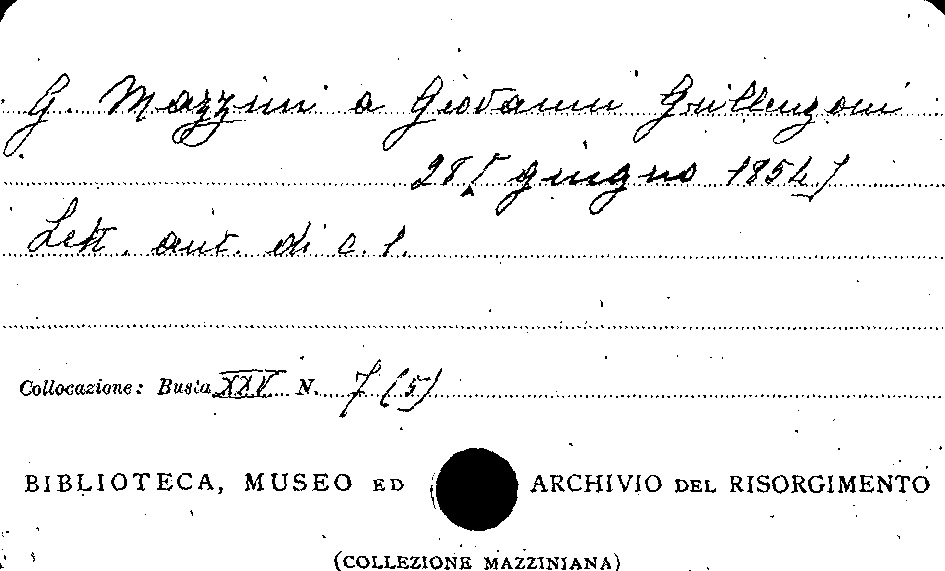 G. Mazzini a Giovanni Grillenzoni
28 [ giugno 1854 ]
Lett. aut. di c. 1.
Collocazione: Busta XXV N. 7 (5)
BIBLIOTECA, MUSEO ED ARCHIVIO DEL RISORGIMENTO
(COLLEZIONE MAZZINIANA)